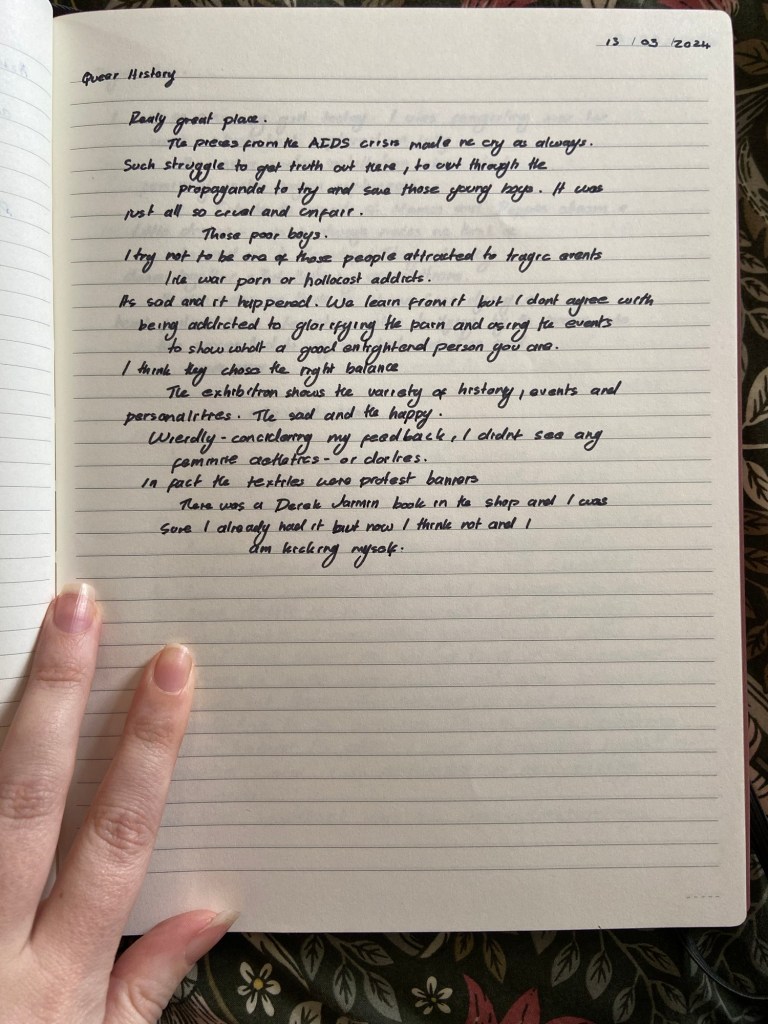 13 / 03 / 2024
Queer History
Realy great place.
The pieces from the AIDS crisis made me cry as always.
Such struggle to get truth out there, to cut through the
propaganda to try and save those young boys. It was
just all so cruel and unfair.
Those poor boys.
I try not to be one of those people attracted to tragic events
like war porn or hollocost addicts.
As sad and it happened. We learn from it but I dont agree with
being addicted to glorifying the pain and using the events
to show whatt a good enlightened person you are.
I think they chose the right balance
The exhibition shows the variety of history, events and
personalities. The sad and the happy.
Wierdly - concidering my feedback, I didnt see any
femme aethetics - or clothes.
In fact the textiles were protest banners
There was a Derek Jarmin book in the shop and I was
sure I already had it but now I think not and I
am kicking myself.